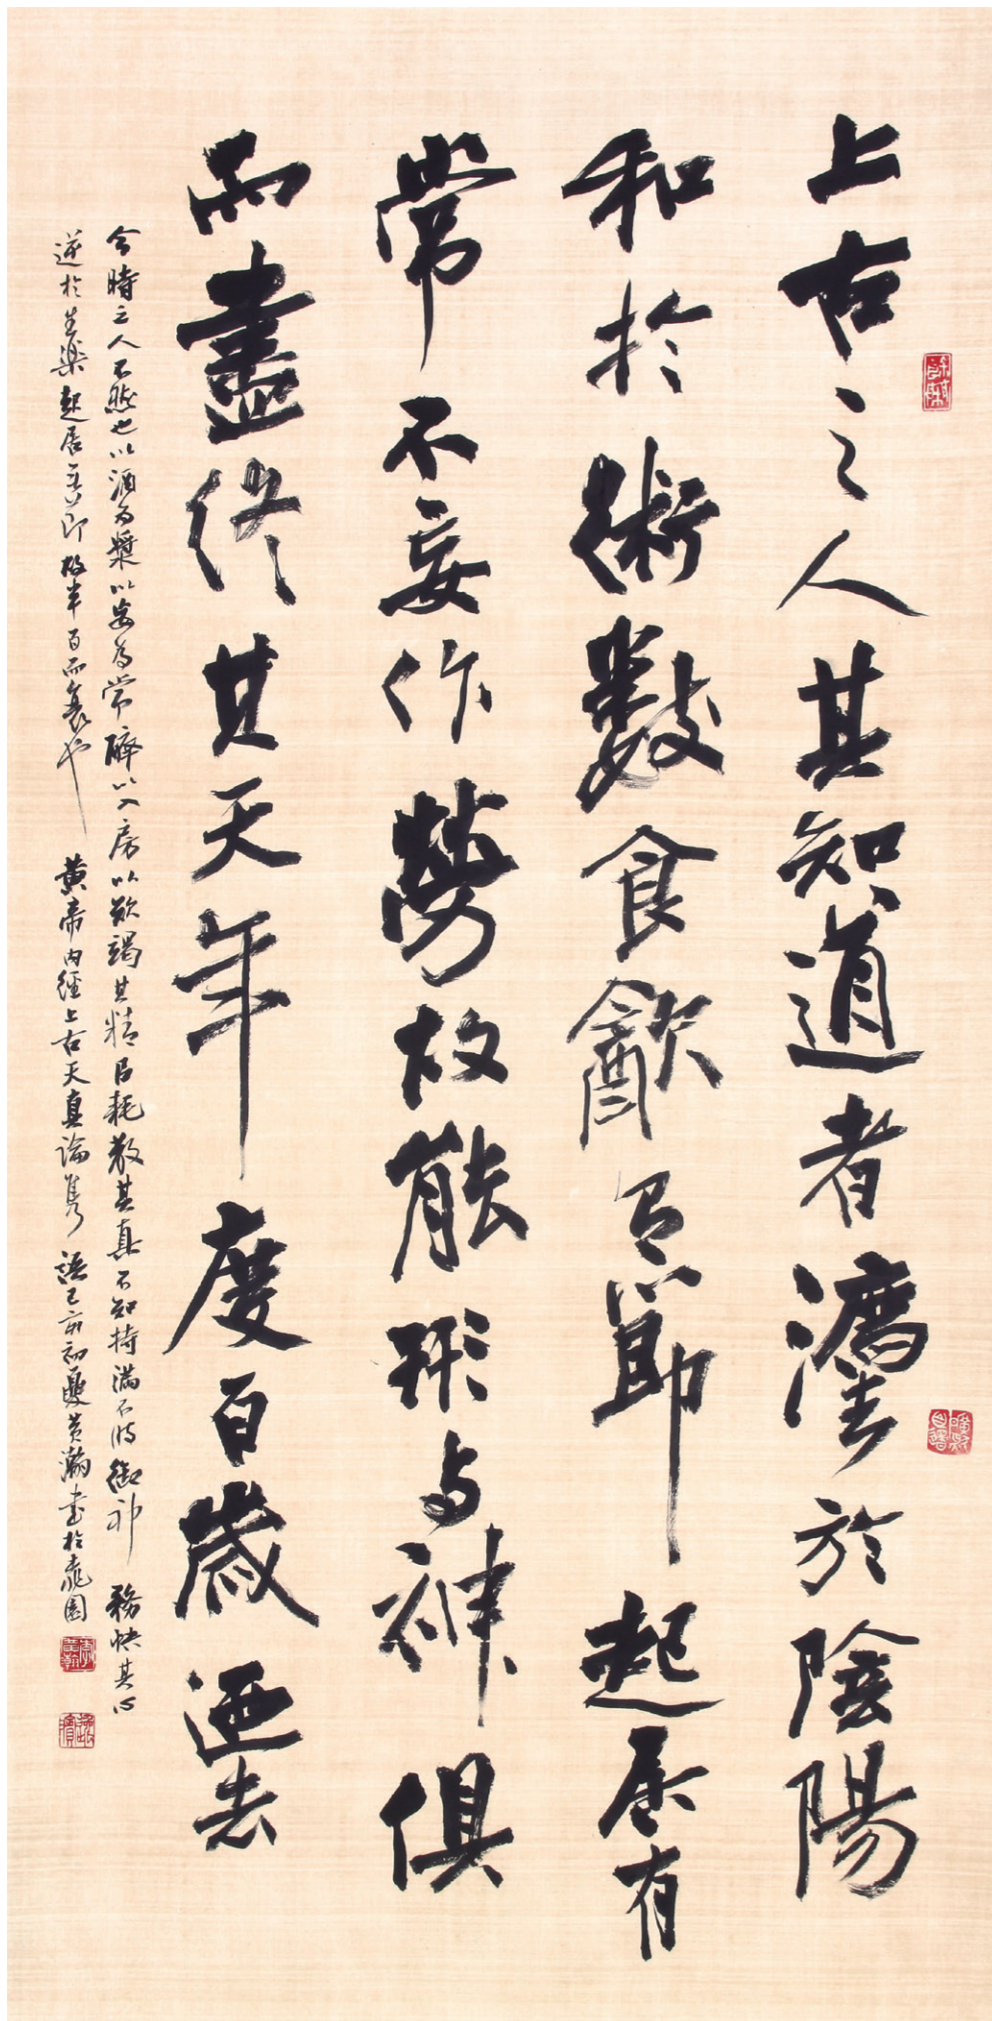 上古之人其知道者灋於陰陽
和於術數食飲有節起居有
常不妄作勞故能形與神俱
而盡終其天年度百歲迺去
今時之人不然也以酒為漿以妄為常醉以入房以欲竭其精以耗散其真不知持滿不時御神 務快其心
逆於生樂起居無節故半百而衰也 黃帝內經上古天真論雋語己亥初夏黃瀚書於 園